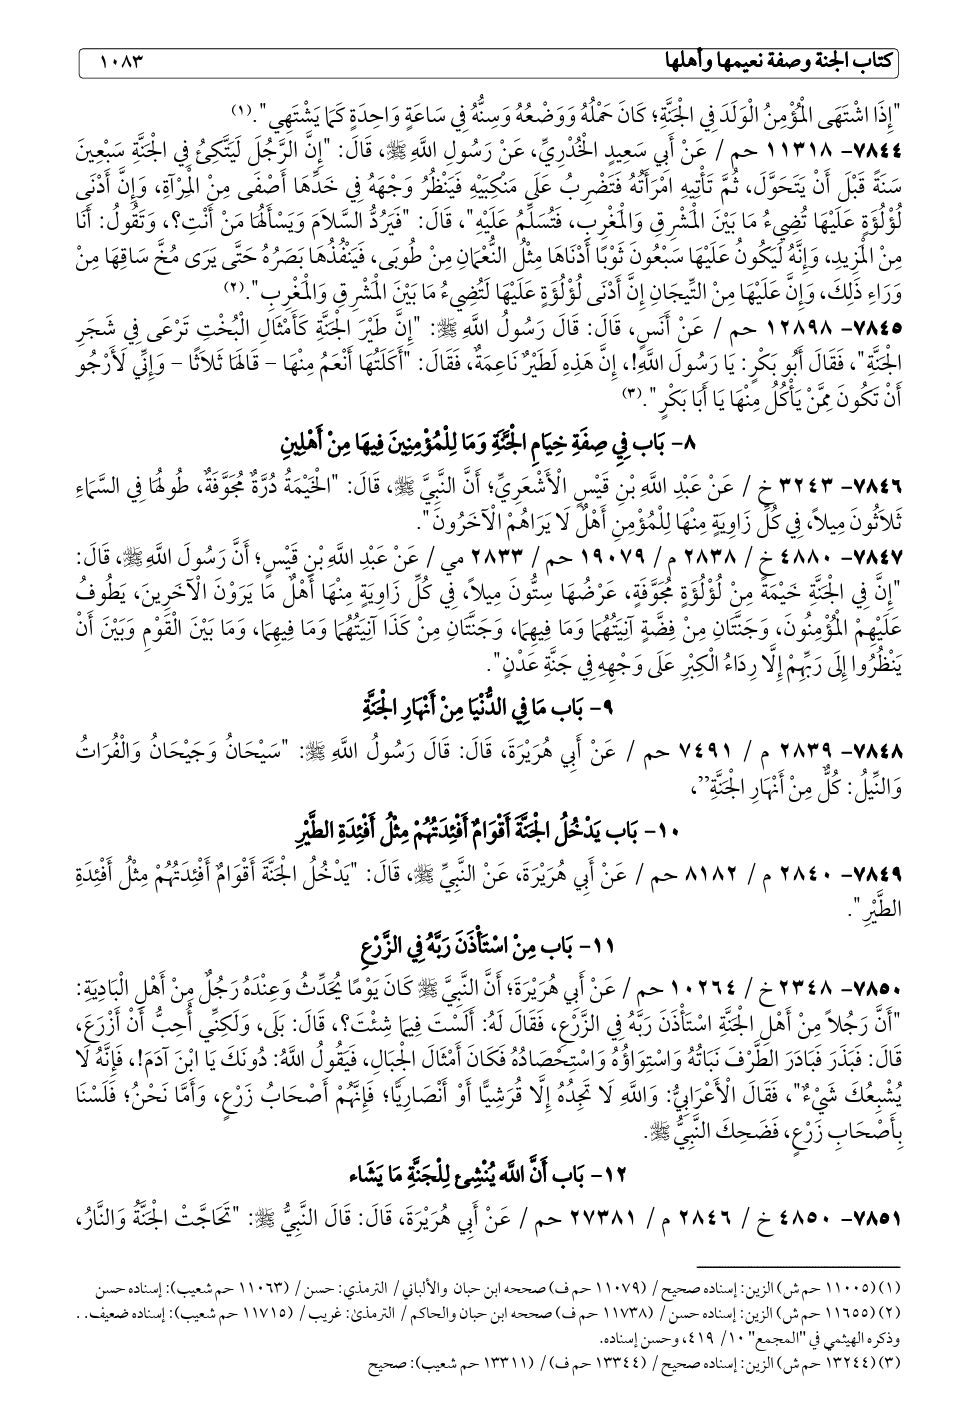 كتاب الجنة وصفة نعيمها وأهلها ١٠٨٣
"إِذَا اشْتَهَى الْمُؤْمِنُ الْوَلَدَ فِي الْجَنَّةِ؛ كَانَ حَمْلُهُ وَوَضْعُهُ وَسِنُّهُ فِي سَاعَةٍ وَاحِدَةٍ كَمَا يَشْتَهِي".(١)
٧٨٤٤- ١١٣١٨ حم / عَنْ أَبِي سَعِيدٍ الْخُدْرِيِّ، عَنْ رَسُولِ اللَّهِ ﷺ، قَالَ: "إِنَّ الرَّجُلَ لَيَتَّكِئُ فِي الْجَنَّةِ سَبْعِينَ
سَنَةً قَبْلَ أَنْ يَتَحَوَّلَ، ثُمَّ تَأْتِيهِ امْرَأَتُهُ فَتَضْرِبُ عَلَى مَنْكِبَيْهِ فَيَنْظُرُ وَجْهَهُ فِي خَدِّهَا أَصْفَى مِنْ الْمِرْآةِ، وَإِنَّ أَدْنَى
لُؤْلُؤَةٍ عَلَيْهَا تُضِيءُ مَا بَيْنَ الْمَشْرِقِ وَالْمَغْرِبِ، فَتُسَلِّمُ عَلَيْهِ"، قَالَ: "فَيَرُدُّ السَّلَامَ وَيَسْأَلُهَا مَنْ أَنْتِ؟، وَتَقُولُ: أَنَا
مِنْ الْمَزِيدِ، وَإِنَّهُ لَيَكُونُ عَلَيْهَا سَبْعُونَ ثَوْبًا أَدْنَاهَا مِثْلُ النُّعْمَانِ مِنْ طُوبَى، فَيَنْفُذُهَا بَصَرُهُ حَتَّى يَرَى مُخَّ سَاقِهَا مِنْ
وَرَاءِ ذَلِكَ، وَإِنَّ عَلَيْهَا مِنْ التِّيجَانِ إِنَّ أَدْنَى لُؤْلُؤَةٍ عَلَيْهَا لَتُضِيءُ مَا بَيْنَ الْمَشْرِقِ وَالْمَغْرِبِ".(٢)
٧٨٤٥- ١٢٨٩٨ حم / عَنْ أَنَسٍ، قَالَ: قَالَ رَسُولُ اللَّهِ ﷺ: "إِنَّ طَيْرَ الْجَنَّةِ كَأَمْثَالِ الْبُخْتِ تَرْعَى فِي شَجَرِ
الْجَنَّةِ"، فَقَالَ أَبُو بَكْرٍ: يَا رَسُولَ اللَّهِ!، إِنَّ هَذِهِ لَطَيْرٌ نَاعِمَةٌ، فَقَالَ: "أَكَلَتُهَا أَنْعَمُ مِنْهَا – قَالَهَا ثَلَاثًا – وَإِنِّي لَأَرْجُو
أَنْ تَكُونَ مِمَّنْ يَأْكُلُ مِنْهَا يَا أَبَا بَكْرٍ".(٣)
٨- بَاب فِي صِفَةِ خِيَامِ الْجَنَّةِ وَمَا لِلْمُؤْمِنِينَ فِيهَا مِنْ أَهْلِينِ
٧٨٤٦- ٣٢٤٣ خ / عَنْ عَبْدِ اللَّهِ بْنِ قَيْسٍ الْأَشْعَرِيِّ؛ أَنَّ النَّبِيَّ ﷺ، قَالَ: "الْخَيْمَةُ دُرَّةٌ مُجَوَّفَةٌ، طُولُهَا فِي السَّمَاءِ
ثَلَاثُونَ مِيلاً، فِي كُلِّ زَاوِيَةٍ مِنْهَا لِلْمُؤْمِنِ أَهْلٌ لَا يَرَاهُمْ الْآخَرُونَ".
٧٨٤٧- ٤٨٨٠ خ / ٢٨٣٨ م/ ١٩٠٧٩ حم / ٢٨٣٣ مي / عَنْ عَبْدِ اللَّهِ بْنِ قَيْسٍ؛ أَنَّ رَسُولَ اللَّهِ ﷺ، قَالَ:
"إِنَّ فِي الْجَنَّةِ خَيْمَةً مِنْ لُؤْلُؤَةٍ مُجَوَّفَةٍ، عَرْضُهَا سِتُّونَ مِيلاً، فِي كُلِّ زَاوِيَةٍ مِنْهَا أَهْلٌ مَا يَرَوْنَ الْآخَرِينَ، يَطُوفُ
عَلَيْهِمْ الْمُؤْمِنُونَ، وَجَنَّتَانِ مِنْ فِضَّةٍ آنِيَتُهُمَا وَمَا فِيهِمَا، وَجَنَّتَانِ مِنْ كَذَا آنِيَتُهُمَا وَمَا فِيهِمَا، وَمَا بَيْنَ الْقَوْمِ وَبَيْنَ أَنْ
يَنْظُرُوا إِلَى رَبِّهِمْ إِلَّا رِدَاءُ الْكِبْرِ عَلَى وَجْهِهِ فِي جَنَّةِ عَدْنٍ".
٩- بَاب مَا فِي الدُّنْيَا مِنْ أَنْهَارِ الْجَنَّةِ
٧٨٤٨- ٢٨٣٩ م / ٧٤٩١ حم / عَنْ أَبِي هُرَيْرَةَ، قَالَ: قَالَ رَسُولُ اللَّهِ ﷺ: "سَيْحَانُ وَجَيْحَانُ وَالْفُرَاتُ
وَالنِّيلُ: كُلٌّ مِنْ أَنْهَارِ الْجَنَّةِ”،
١٠- بَاب يَدْخُلُ الْجَنَّةَ أَقْوَامٌ أَفْئِدَتُهُمْ مِثْلُ أَفْئِدَةِ الطَّيْرِ
٧٨٤٩- ٢٨٤٠ م / ٨١٨٢ حم / عَنْ أَبِي هُرَيْرَةَ، عَنْ النَّبِيِّ ﷺ، قَالَ: "يَدْخُلُ الْجَنَّةَ أَقْوَامٌ أَفْئِدَتُهُمْ مِثْلُ أَفْئِدَةِ
الطَّيْرِ".
١١- بَاب مِنْ اسْتَأْذَنَ رَبَّهُ فِي الزَّرْعِ
٧٨٥٠- ٢٣٤٨ خ / ١٠٢٦٤ حم / عَنْ أَبِي هُرَيْرَةَ؛ أَنَّ النَّبِيَّ ﷺ كَانَ يَوْمًا يُحَدِّثُ وَعِنْدَهُ رَجُلٌ مِنْ أَهْلِ الْبَادِيَةِ:
"أَنَّ رَجُلاً مِنْ أَهْلِ الْجَنَّةِ اسْتَأْذَنَ رَبَّهُ فِي الزَّرْعِ، فَقَالَ لَهُ: أَلَسْتَ فِيمَا شِئْتَ؟، قَالَ: بَلَى، وَلَكِنِّي أُحِبُّ أَنْ أَزْرَعَ،
قَالَ: فَبَذَرَ فَبَادَرَ الطَّرْفَ نَبَاتُهُ وَاسْتِوَاؤُهُ وَاسْتِحْصَادُهُ فَكَانَ أَمْثَالَ الْجِبَالِ، فَيَقُولُ اللَّهُ: دُونَكَ يَا ابْنَ آدَمَ!، فَإِنَّهُ لَا
يُشْبِعُكَ شَيْءٌ"، فَقَالَ الْأَعْرَابِيُّ: وَاللَّهِ لَا تَجِدُهُ إِلَّا قُرَشِيًّا أَوْ أَنْصَارِيًّا؛ فَإِنَّهُمْ أَصْحَابُ زَرْعٍ، وَأَمَّا نَحْنُ؛ فَلَسْنَا
بِأَصْحَابِ زَرْعٍ، فَضَحِكَ النَّبِيُّ ﷺ.
١٢- بَاب أَنَّ اللَّه يُنْشِئ لِلْجَنَّةِ مَا يَشَاء
٧٨٥١- ٤٨٥٠ خ / ٢٨٤٦ م / ٢٧٣٨١ حم / عَنْ أَبِي هُرَيْرَةَ، قَالَ: قَالَ النَّبِيُّ ﷺ: "تَحَاجَّتْ الْجَنَّةُ وَالنَّارُ،
(١) (١١٠٠٥ حم ش) الزين: إسناده صحيح / (١١٠٧٩ حم ف) صححه ابن حبان والألباني / الترمذي: حسن / (١١٠٦٣ حم شعيب): إسناده حسن
(٢) (١١٦٥٥ حم ش) الزين: إسناده حسن / (١١٧٣٨ حم ف) صححه ابن حبان والحاكم / الترمذى: غريب / (١١٧١٥ حم شعيب): إسناده ضعيف. .
وذكره الهيثمي في "المجمع" ١٠/ ٤١٩، وحسن إسناده.
(٣) (١٣٢٤٤ حم ش) الزين: إسناده صحيح / (١٣٣٤٤ حم ف)/ (١٣٣١١ حم شعيب): صحيح